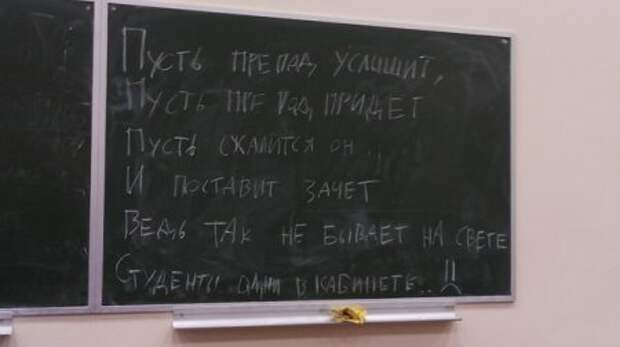 Пусть препад услышит,
Пусть препад придет
Пусть сжалится он..
И поставит зачет
Ведь так не бывает на свете
Студенты одни в кабинете..